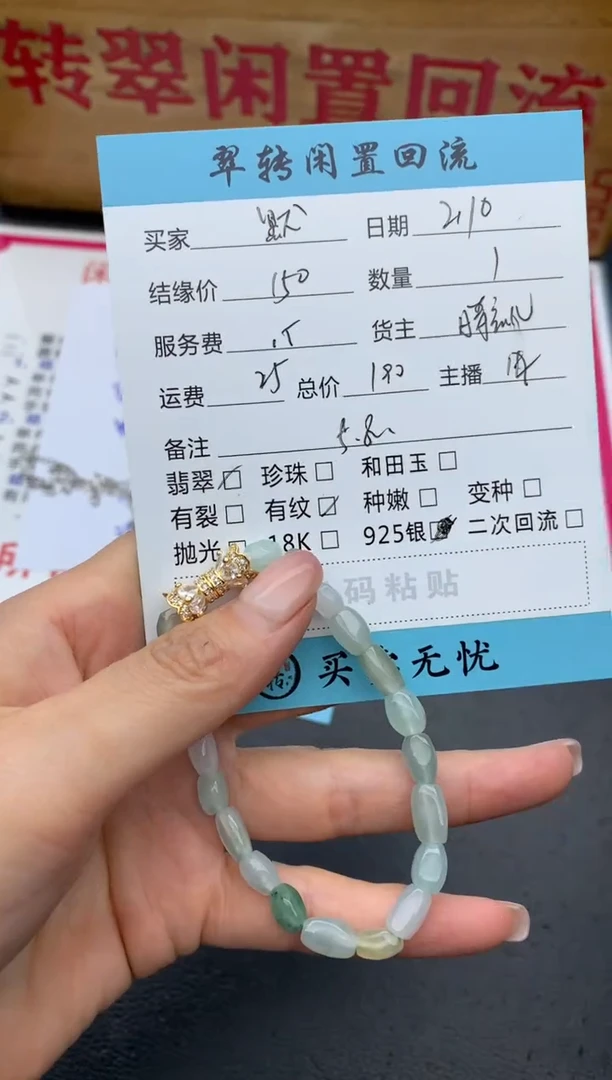 转翠闲置回流
翠转闲置回流
买家 默 日期 2.10
结缘价 150 数量 1
服务费 15 货主
运费 25 总价 190 主播
备注
翡翠☑ 珍珠☐ 和田玉☐
有裂☐ 有纹☑ 种嫩☐ 变种☐
抛光☐ 18K☐ 925银 二次回流☐
码粘贴
买 无忧